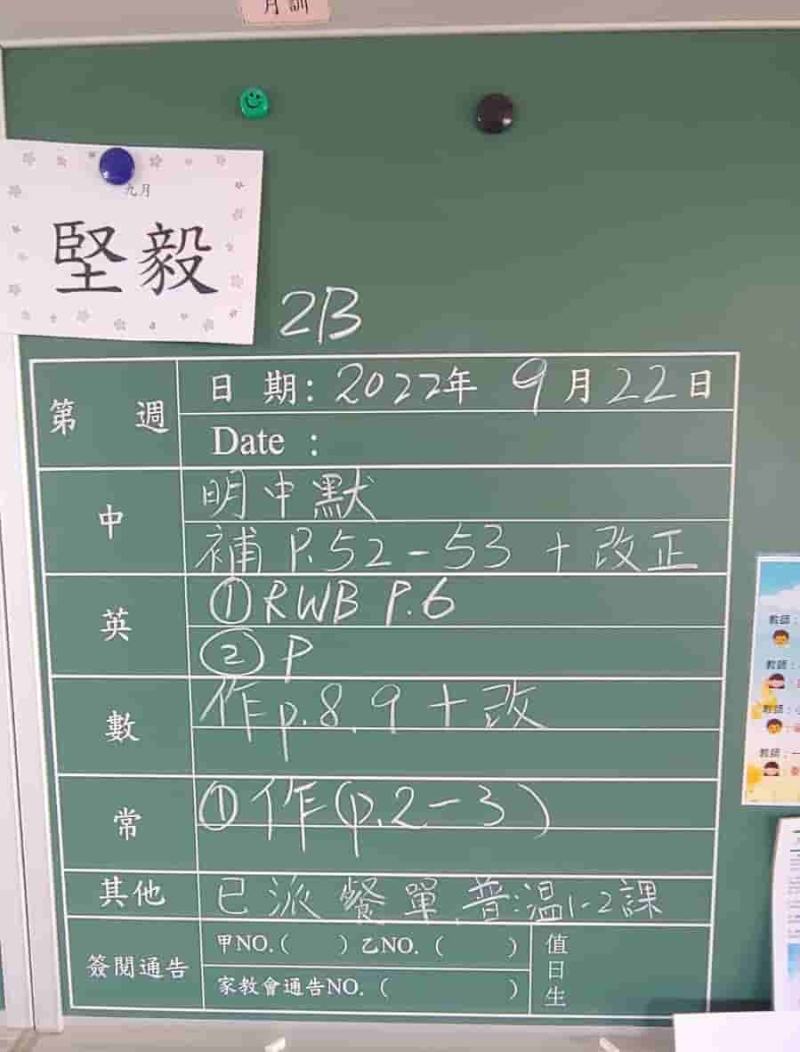 月訓
九月
堅毅
2B
第 週
日 期: 2022年 9月22日
Date :
中
明中默
補 P.52-53 + 改正
英
①RWB P.6
② P
數
作p.8,9+改
常
①作(p.2-3)
其他
已派餐單 普:温1-2課
簽閱通告
甲NO.( ) 乙NO.( )
家教會通告NO.( )
值日生
教師:
教師:
教師:小
教師:一